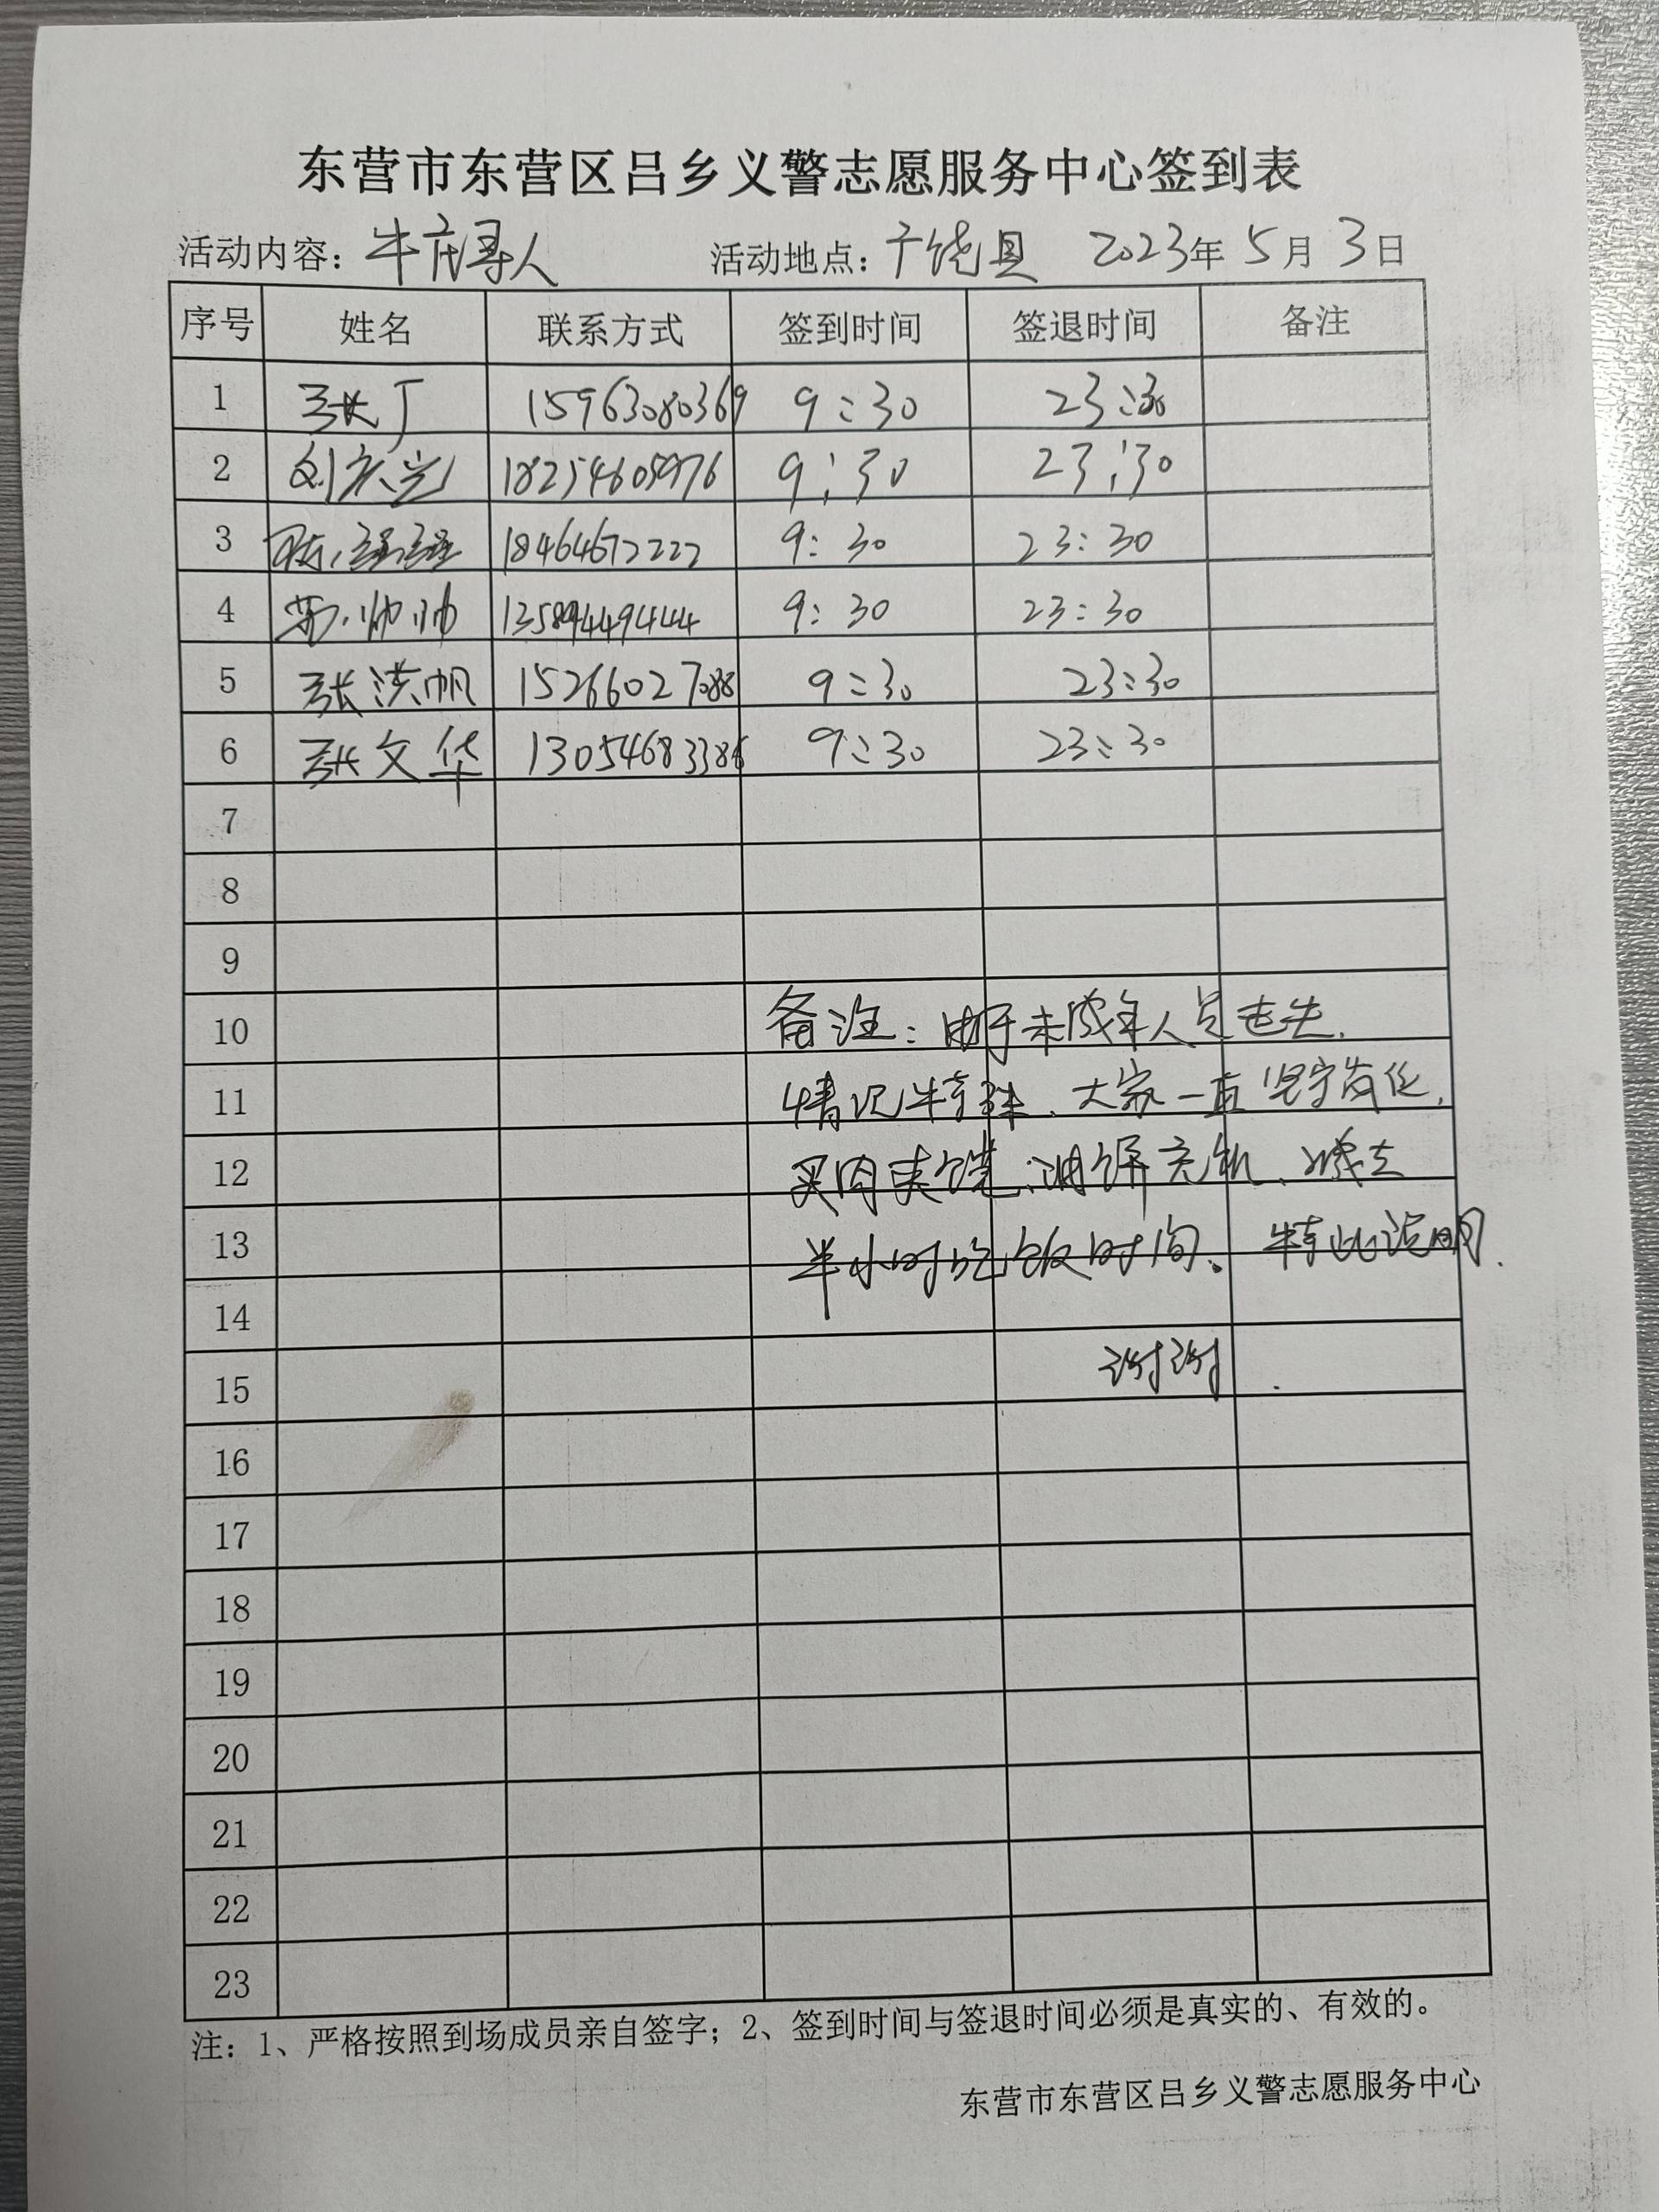 东营市东营区吕乡义警志愿服务中心签到表
活动内容：牛庄寻人 活动地点：广饶县 2023年 5月 3日
序号 姓名 联系方式 签到时间 签退时间 备注
1 张丁 15963080369 9:30 23:30
2 刘庆兴 18254605976 9:30 23:30
3 18464672222 9:30 23:30
4 帅帅 13589449444 9:30 23:30
5 张洪帆 15266027088 9:30 23:30
6 张文华 13054683386 9:30 23:30
7
8
9
10 备注：由于未成年人员走失，
11 情况特殊，大家一直坚守岗位，
12 买肉夹馍、油饼充饥，减去
13 半小时吃饭时间。特此说明.
14
15 谢谢.
16
17
18
19
20
21
22
23
注：1、严格按照到场成员亲自签字；2、签到时间与签退时间必须是真实的、有效的。
东营市东营区吕乡义警志愿服务中心